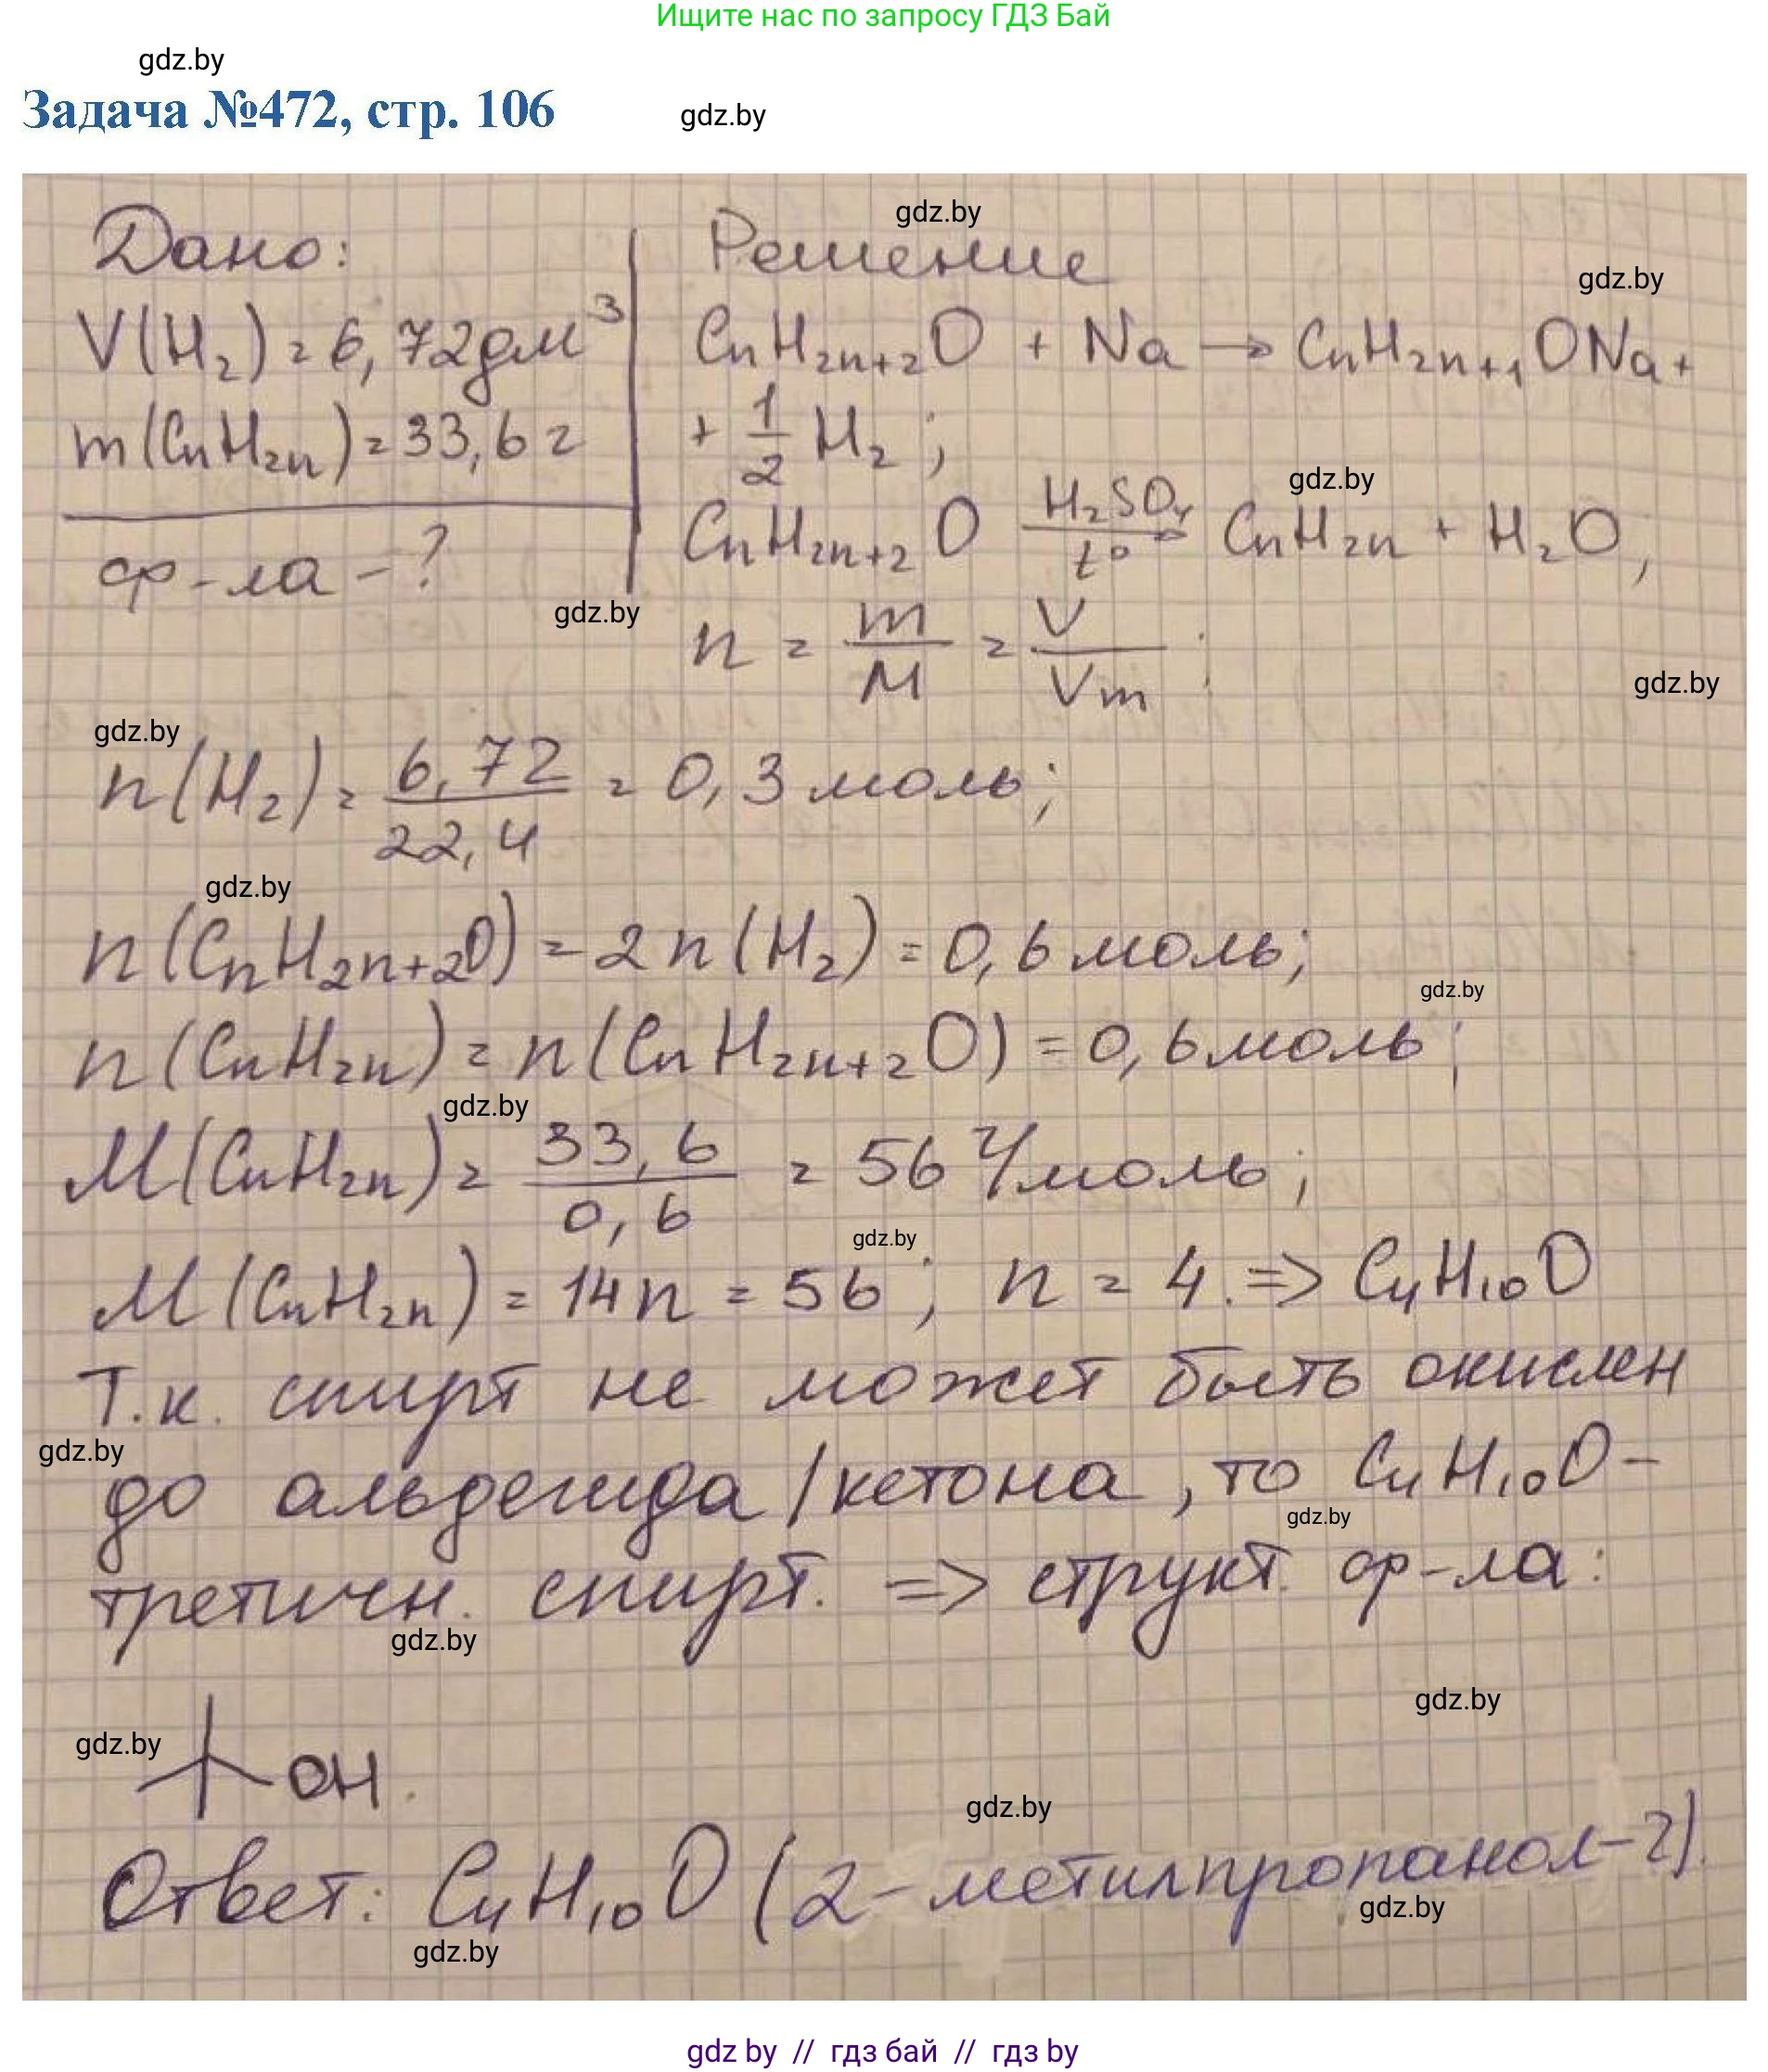 Ищите нас по запросу ГДЗ Бай
gdz.by
Задача №472, стр. 106
gdz.by
gdz.by
Дано:
Решение
gdz.by
V(H₂) = 6,72 дм³
CnH₂n₊₂O + Na → CnH₂n₊₁ONa +
m(CnH₂n) = 33,6 г
+ 1/2 H₂ ;
gdz.by
ф-ла - ?
CnH₂n₊₂O H₂SO₄ t° → CnH₂n + H₂O ;
gdz.by
n = m/M = V/Vm ;
gdz.by
gdz.by
n(H₂) = 6,72/22,4 = 0,3 моль ;
gdz.by
n(CnH₂n₊₂O) = 2n(H₂) = 0,6 моль ;
gdz.by
n(CnH₂n) = n(CnH₂n₊₂O) = 0,6 моль ;
gdz.by
M(CnH₂n) = 33,6/0,6 = 56 г/моль ;
gdz.by
M(CnH₂n) = 14n = 56 ; n = 4. => C₄H₁₀O
Т.к. спирт не может быть окислен
gdz.by
до альдегида/кетона, то C₄H₁₀O -
gdz.by
третичн. спирт. => структ. ф-ла:
gdz.by
gdz.by
gdz.by
OH.
gdz.by
Ответ: C₄H₁₀O (2-метилпропанол-2).
gdz.by
gdz.by
gdz by // гдз бай // гдз by